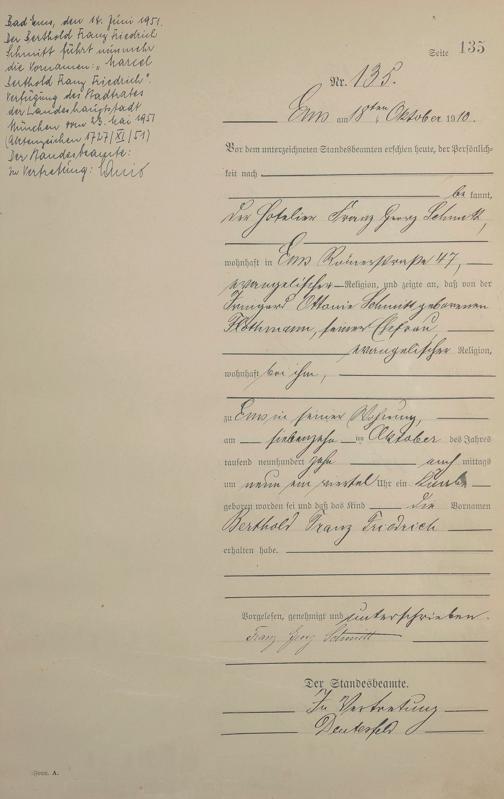 Bad Ems, den 14. Juni 1951.
Der Berthold Franz Friedrich
Schmitt führt nunmehr
die Vornamen: „Marcel
Berthold Franz Friedrich".
Verfügung des Stadtrates
der Landeshauptstadt
München vom 23. Mai 1951
(Aktenzeichen 1727/XI/51)
Der Standesbeamte:
In Vertretung:
Seite 135
Nr. 135.
Ems am 18ten Oktober 1910.
Vor dem unterzeichneten Standesbeamten erschien heute, der Persönlich-
keit nach
be kannt,
der Hotelier Franz Georg Schmitt,
wohnhaft in Ems Römerstraße 47,
evangelischer Religion, und zeigte an, daß von der
Ottonie Schmitt geborenen
Flöthmann, seiner Ehefrau,
evangelischer Religion,
wohnhaft bei ihm,
zu Ems in seiner Wohnung,
am siebenzehn ten Oktober des Jahres
tausend neunhundert zehn nach mittags
um neun ein viertel Uhr ein Knabe
geboren worden sei und daß das Kind die Vornamen
Berthold Franz Friedrich
erhalten habe.
Vorgelesen, genehmigt und unterschrieben.
Franz Georg Schmitt
Der Standesbeamte.
In Vertretung
Form. A.